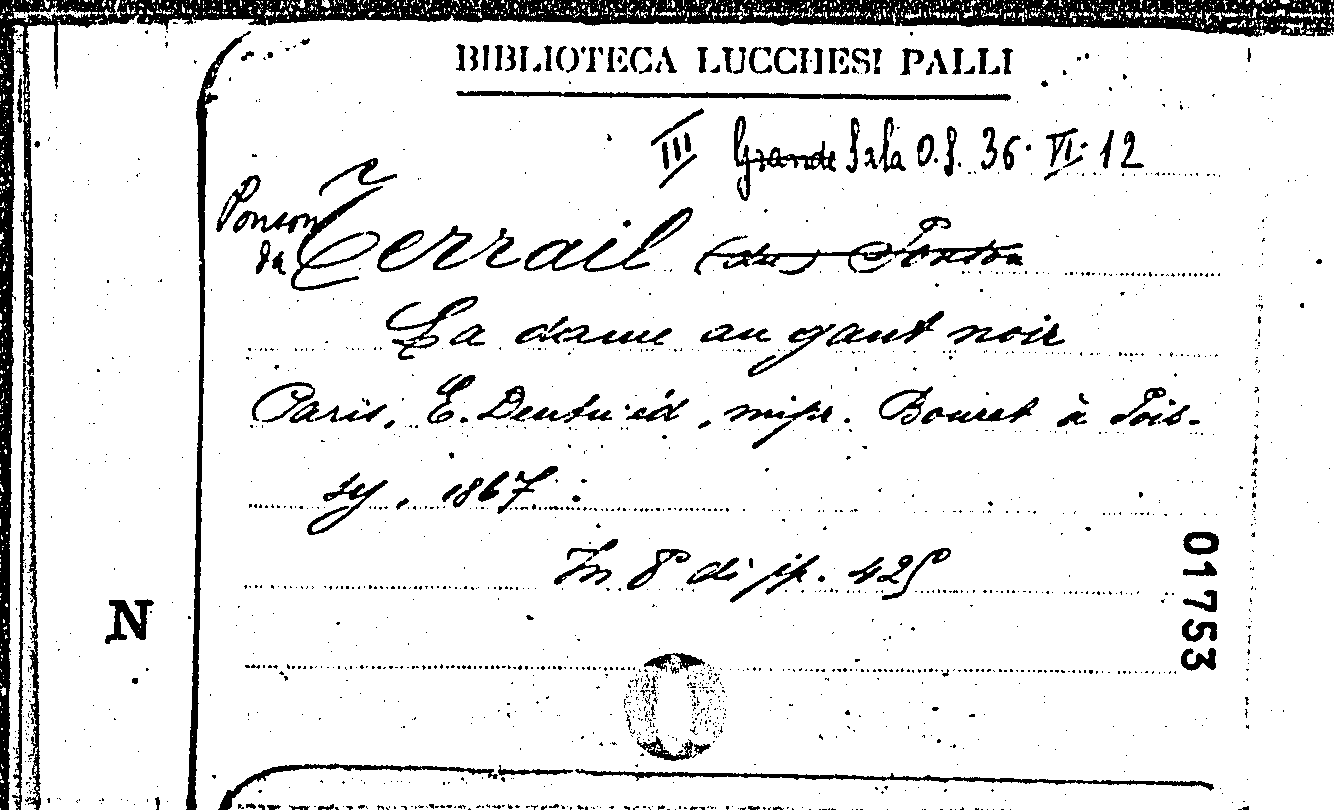 BIBLIOTECA LUCCHESI PALLI
III Grande Sala O.S. 36. VI. 12
Ponson
du Terrail (du) Ponson
La dame au gant noir
Paris, E. Dentu éd, impr. Bouret à Pois-
sy, 1867.
In 8° di pp. 425
01753
N